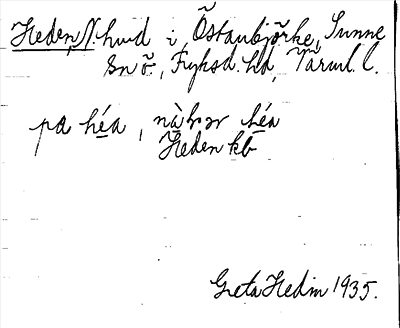 Heden, ll. hvd i Östanbjörke, Sunne
sn ö., Fryksd. hd, Värml. l.
pa héa, nàhər héa
Heden kb
Greta Hedin 1935.